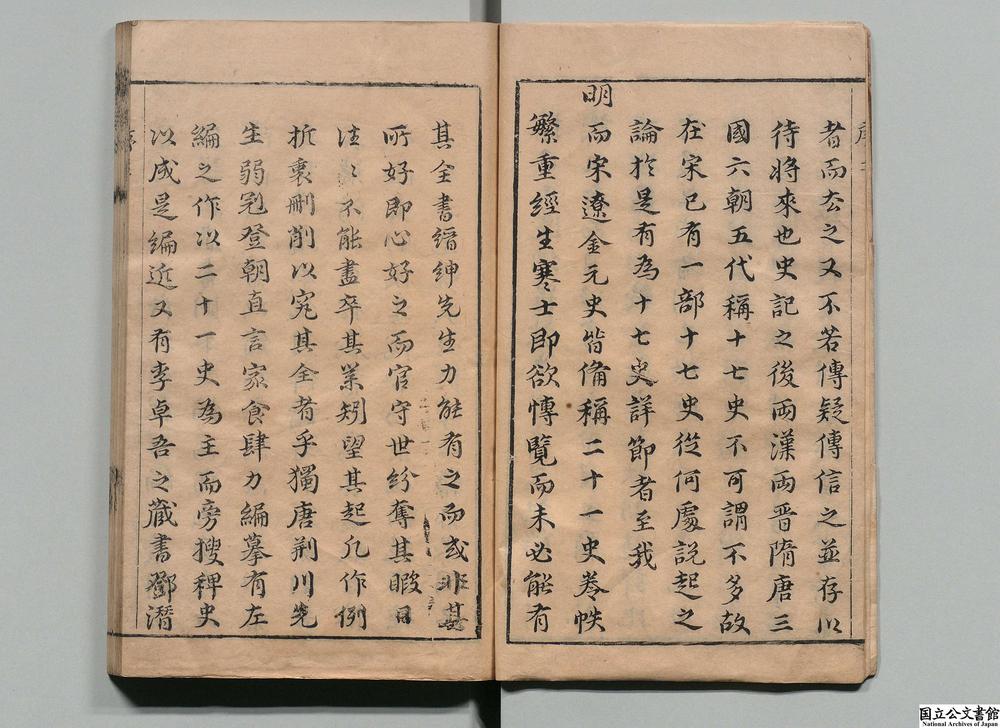 者而去之又不若傳疑傳信之並存以
待將來也史記之後兩漢兩晉隋唐三
國六朝五代稱十七史不可謂不多故
在宋已有一部十七史從何處說起之
論於是有為十七史詳節者至我
明而宋遼金元史皆備稱二十一史卷帙
繁重經生寒士即欲博覽而未必能有
其全書縉紳先生力能有之而或非其
所好即心好之而官守世紛奪其暇日
往〻不能盡卒其業矧望其起凡作例
折衷刪削以究其全者乎獨唐荊川先
生弱冠登朝直言家食肆力編摹有左
編之作以二十一史為主而旁搜稗史
以成是編近又有李卓吾之藏書鄧潛
国立公文書館
National Archives of Japan